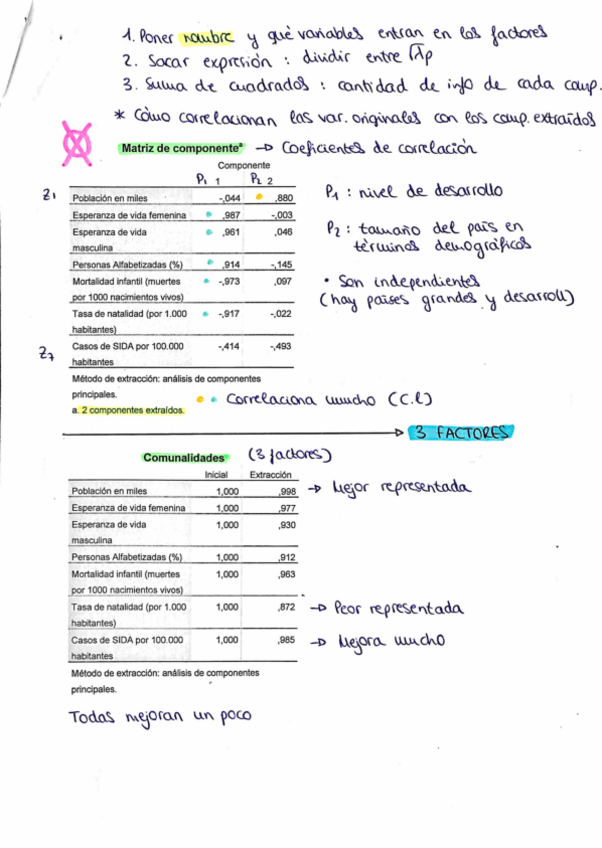 1. Poner nombre y qué variables entran en los factores
2. Sacar expresión : dividir entre √λp
3. Suma de cuadrados : cantidad de info de cada comp.
* Cómo correlacionan las var. originales con los comp. extraídos
Matriz de componenteª → Coeficientes de correlación
Componente
P₁ 1 P₂ 2
Z₁ Población en miles -,044 ,880
Esperanza de vida femenina ,987 -,003
Esperanza de vida
masculina ,961 ,046
Personas Alfabetizadas (%) ,914 -,145
Mortalidad infantil (muertes
por 1000 nacimientos vivos) -,973 ,097
Tasa de natalidad (por 1.000
habitantes) -,917 -,022
Z₇ Casos de SIDA por 100.000
habitantes -,414 -,493
P₁ : nivel de desarrollo
P₂ : tamaño del país en
términos demográficos
• Son independientes
(hay países grandes y desarroll)
Método de extracción: análisis de componentes
principales.
a. 2 componentes extraídos.
Correlaciona mucho (C.l)
→ 3 FACTORES
Comunalidades (3 factores)
Inicial Extracción
Población en miles 1,000 ,998 → Mejor representada
Esperanza de vida femenina 1,000 ,977
Esperanza de vida
masculina 1,000 ,930
Personas Alfabetizadas (%) 1,000 ,912
Mortalidad infantil (muertes
por 1000 nacimientos vivos) 1,000 ,963
Tasa de natalidad (por 1.000
habitantes) 1,000 ,872 → Peor representada
Casos de SIDA por 100.000
habitantes 1,000 ,985 → Mejora mucho
Método de extracción: análisis de componentes
principales.
Todas mejoran un poco